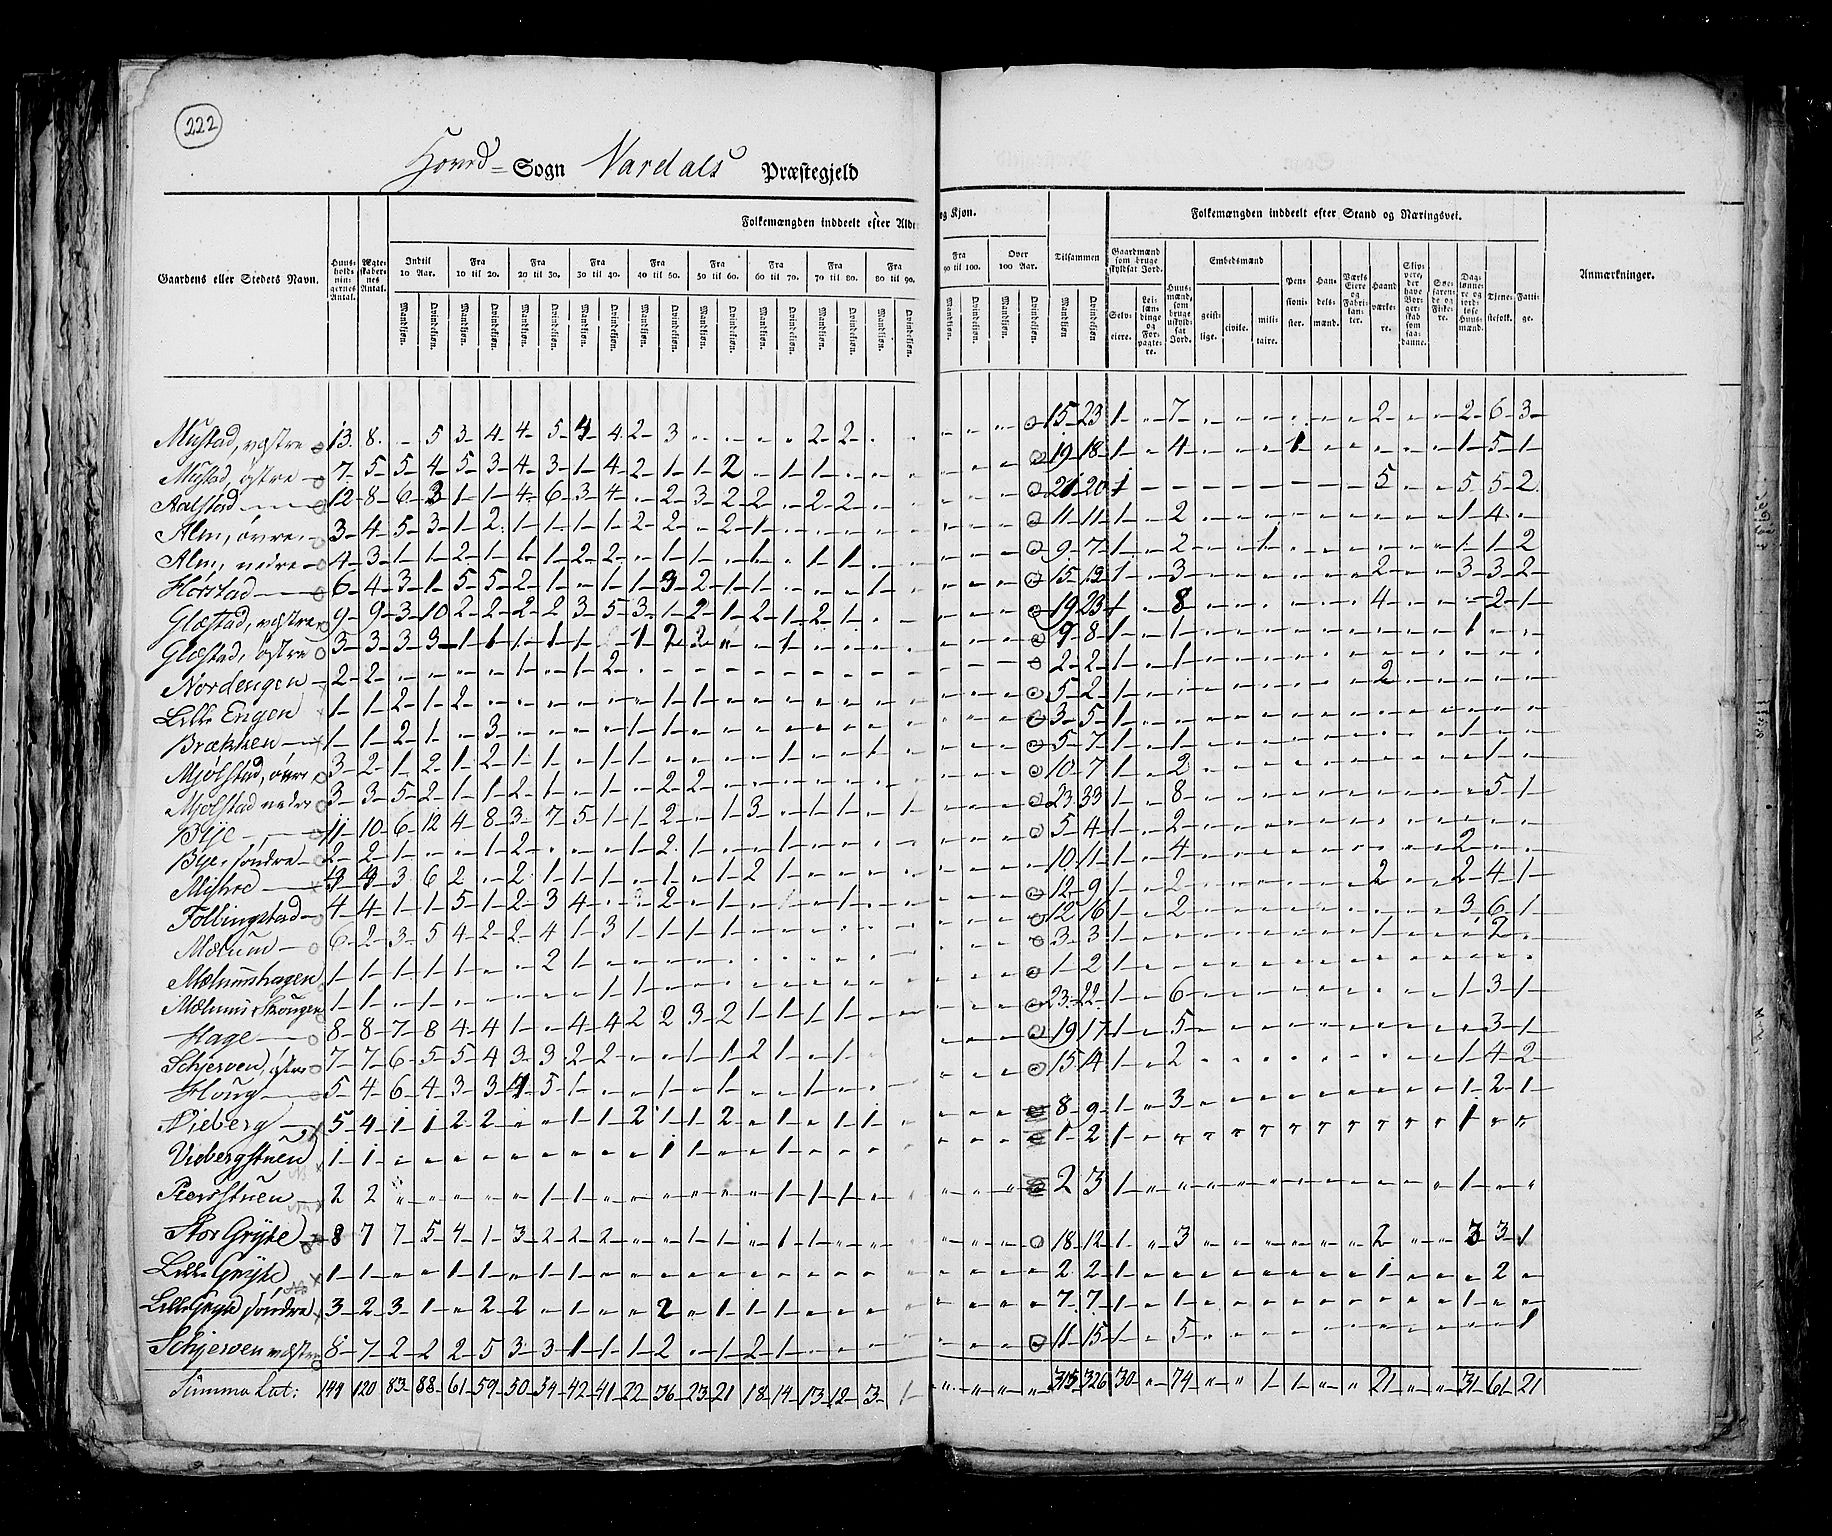 222
Hoved- Sogn Vardals Præstegjeld
Folkemængden inddeelt efter Ald
og Kjøn.
Folkemængden inddeelt efter Stand og Næringsvei.
Gaardens eller Stedets Navn.
Huusholdningernes Antal.
Ægteskabernes Antal.
Indtil 10 Aar.
Fra 10 til 20.
Fra 20 til 30.
Fra 30 til 40.
Fra 40 til 50.
Fra 50 til 60.
Fra 60 til 70.
Fra 70 til 80.
Fra 80 til 90.
Fra 90 til 100.
Over 100 Aar.
Tilsammen
Mandkjøn. Qvindekjøn.
Gaardmænd som bruge skyldsat Jord.
Selveiere.
Leilændinge og Forpagtere.
Huusmænd, som bruge uskyldsat Jord.
Embedsmænd
geistlige. civile. militaire.
Pensionister.
Handelsmænd.
Værks Eiere og Fabrikanter.
Haandværkere.
Skippere, der have Borgerskab som saadanne.
Søefarende og Fiskere.
Daglønnere og jordløse Huusmænd.
Tjenestefolk.
Fattige.
Anmærkninger.
Mustad, væstre 13 8 - 5 3 4 4 5 4 4 2 3 - - - - 2 2 15 23 1 - 7 2 2 6 3
Mustad, østre 7 5 5 4 5 3 4 3 1 4 2 1 1 2 - 1 1 19 18 1 - 4 1 1 5 1
Aalstad 12 8 6 3 1 1 4 6 3 4 - 2 3 2 2 - 2 2 21 20 1 5 5 5 2
Alm, øvre 3 4 5 3 1 2 1 1 1 1 2 2 - 2 1 11 11 1 - 2 1 4
Alm, nedre 4 3 1 1 2 1 1 1 2 2 - 1 1 - 1 - 1 1 9 7 1 - 2 1 1 1 2
Horstad 6 4 3 1 5 5 2 1 - 1 1 3 2 1 1 - - - 1 15 1 - 3 2 3 3 2
Glæstad, væstre 9 9 3 10 2 2 2 2 3 5 3 1 2 1 2 1 2 1 19 23 1 - 8 4 - 2 1
Glæstad, østre 3 3 3 3 1 1 1 1 1 - 1 2 2 - - 1 9 8 1 - 1 1
Nordengen 2 2 - - - - 1 - 1 2 2 2 1 - 1
Lille Engen 1 1 2 1 2 - - - - - - 1 1 5 2 1 2
Brækken 1 1 2 1 - 3 - - - - 1 1 3 5 1
Mjølstad, øvre 3 2 1 2 1 2 1 1 - 1 1 - - - - 1 - - 1 5 7 1 - 1 1
Mjølstad nedre 3 3 5 2 1 1 2 1 - 1 - 2 2 10 7 1 - 2 1
Bye 11 10 6 12 4 8 3 7 5 1 1 2 - 1 3 - 1 1 - 1 23 33 1 - 8 5 1
Bye, søndre 2 2 1 - - 1 2 - - - 1 2 1 5 4 1 - 2
3 6 2 - 2 1 1 1 - 1 - 1 2 1 10 11 1 - 4 2
Follingstad 4 4 1 1 5 1 2 3 4 - - 2 - 1 - - - 1 12 9 1 - 2 2 2 4 1
Mælum 6 2 3 5 4 2 2 4 1 3 1 1 1 1 12 16 1 - 2 3 6 1
Mælumshagen 1 1 1 1 1 - - 2 1 3 3 1 1 - 2
Mælums Skougen 1 1 - 1 - - - - - 1 1 1 2 1
Hage 8 8 7 8 4 4 1 - 4 4 2 2 3 2 1 1 1 1 23 22 1 - 6 1 3 1
Schjerven, østre 7 7 6 5 5 4 3 3 2 2 - - 1 1 2 1 - 1 19 17 1 - 5 3 1
Houg 5 4 6 4 3 3 4 5 1 - - 1 - 1 - - 1 15 14 1 - 2 1 4 2
Vieberg 5 4 1 1 2 2 - - 1 1 2 1 1 2 - 1 - 1 1 8 9 1 - 3 1 2 1
Viebergstuen 1 1 - - - - - - - - - 1 1 - 1 1 2 1 1
Persstuen 2 2 - - - - - 1 1 - - - - - - 1 1 1 2 3 1 1
Stor Gryte 8 7 7 5 4 1 3 2 2 2 - - 1 1 - 1 1 18 12 1 - 3 2 3 3 1
Lille Gryte 1 1 - - 1 1 - 1 2 2 1 1 2
Lille Gryte søndre 3 2 3 1 - 2 2 - 1 - - 2 - 1 1 1 7 7 1 - 1 1
Schjerven væstre 8 7 2 2 2 5 3 3 1 1 1 2 - 1 2 1 11 15 1 - 5 1
Summa Lat: 149 120 83 88 61 59 50 54 42 41 22 36 23 21 18 14 13 12 3 1 315 326 30 - 74 - - 1 1 - - 21 - - 31 61 21